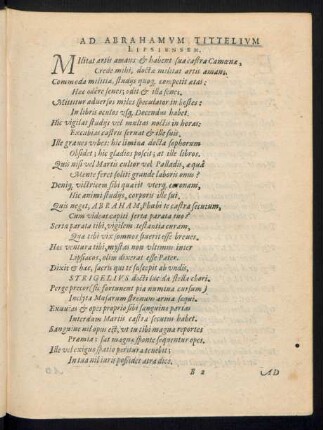 AD ABRAHAMVM TITTELIVM
LIPSIENSEM.
MIlitat artis amans & habent sua castra Camœnæ,
Crede mihi, docta militat artis amans.
Commoda militiæ, studijs quoq; competit ætas:
Hæc odêre senes, odit & illa senes.
Mittitur aduersos miles speculator in hostes:
In libris oculos usq; Decundus habet.
Hic vigilat studijs vel multas noctis in horas:
Excubias castris seruat & ille suis.
Ille graues vrbes: hic limina docta sophorum
Obsidet; hic gladios poscit; at ille libros.
Quis nisi vel Martis cultor vel Palladis, æqua
Mente feret soliti grande laboris onus?
Deniq; victricem sibi quærit vterq; coronam,
Hic animi studijs, corporis ille sui.
Quis neget, ABRAHAM, Phœbi te castra secutum,
Cum videat capiti serta parata tuo?
Serta parata tibi, vigilem testantia curam,
Qua tibi vix somnos fuerit esse breues.
Hos ventura tibi, mystas non vltimus inter
Lipsiacos, olim dixerat esse Pater.
Dixit & hæc, sacris quos te suscepit ab vndis,
STRIGELIVS docti lucida stella chori.
Perge precor (sic fortunent pia numina cursum)
Incepta Musarum strenuus arma sequi.
Exuuias & opes proprio sibi sanguine partas
Interdum Martis castra secutus habet.
Sanguine nil opus est, vt tu tibi magna reportes
Præmia: sat magna sponte sequentur opes.
Ille vel exigua spatio potitura tenebit:
In tua nil iuris possidet atra dies.
B 2 AD